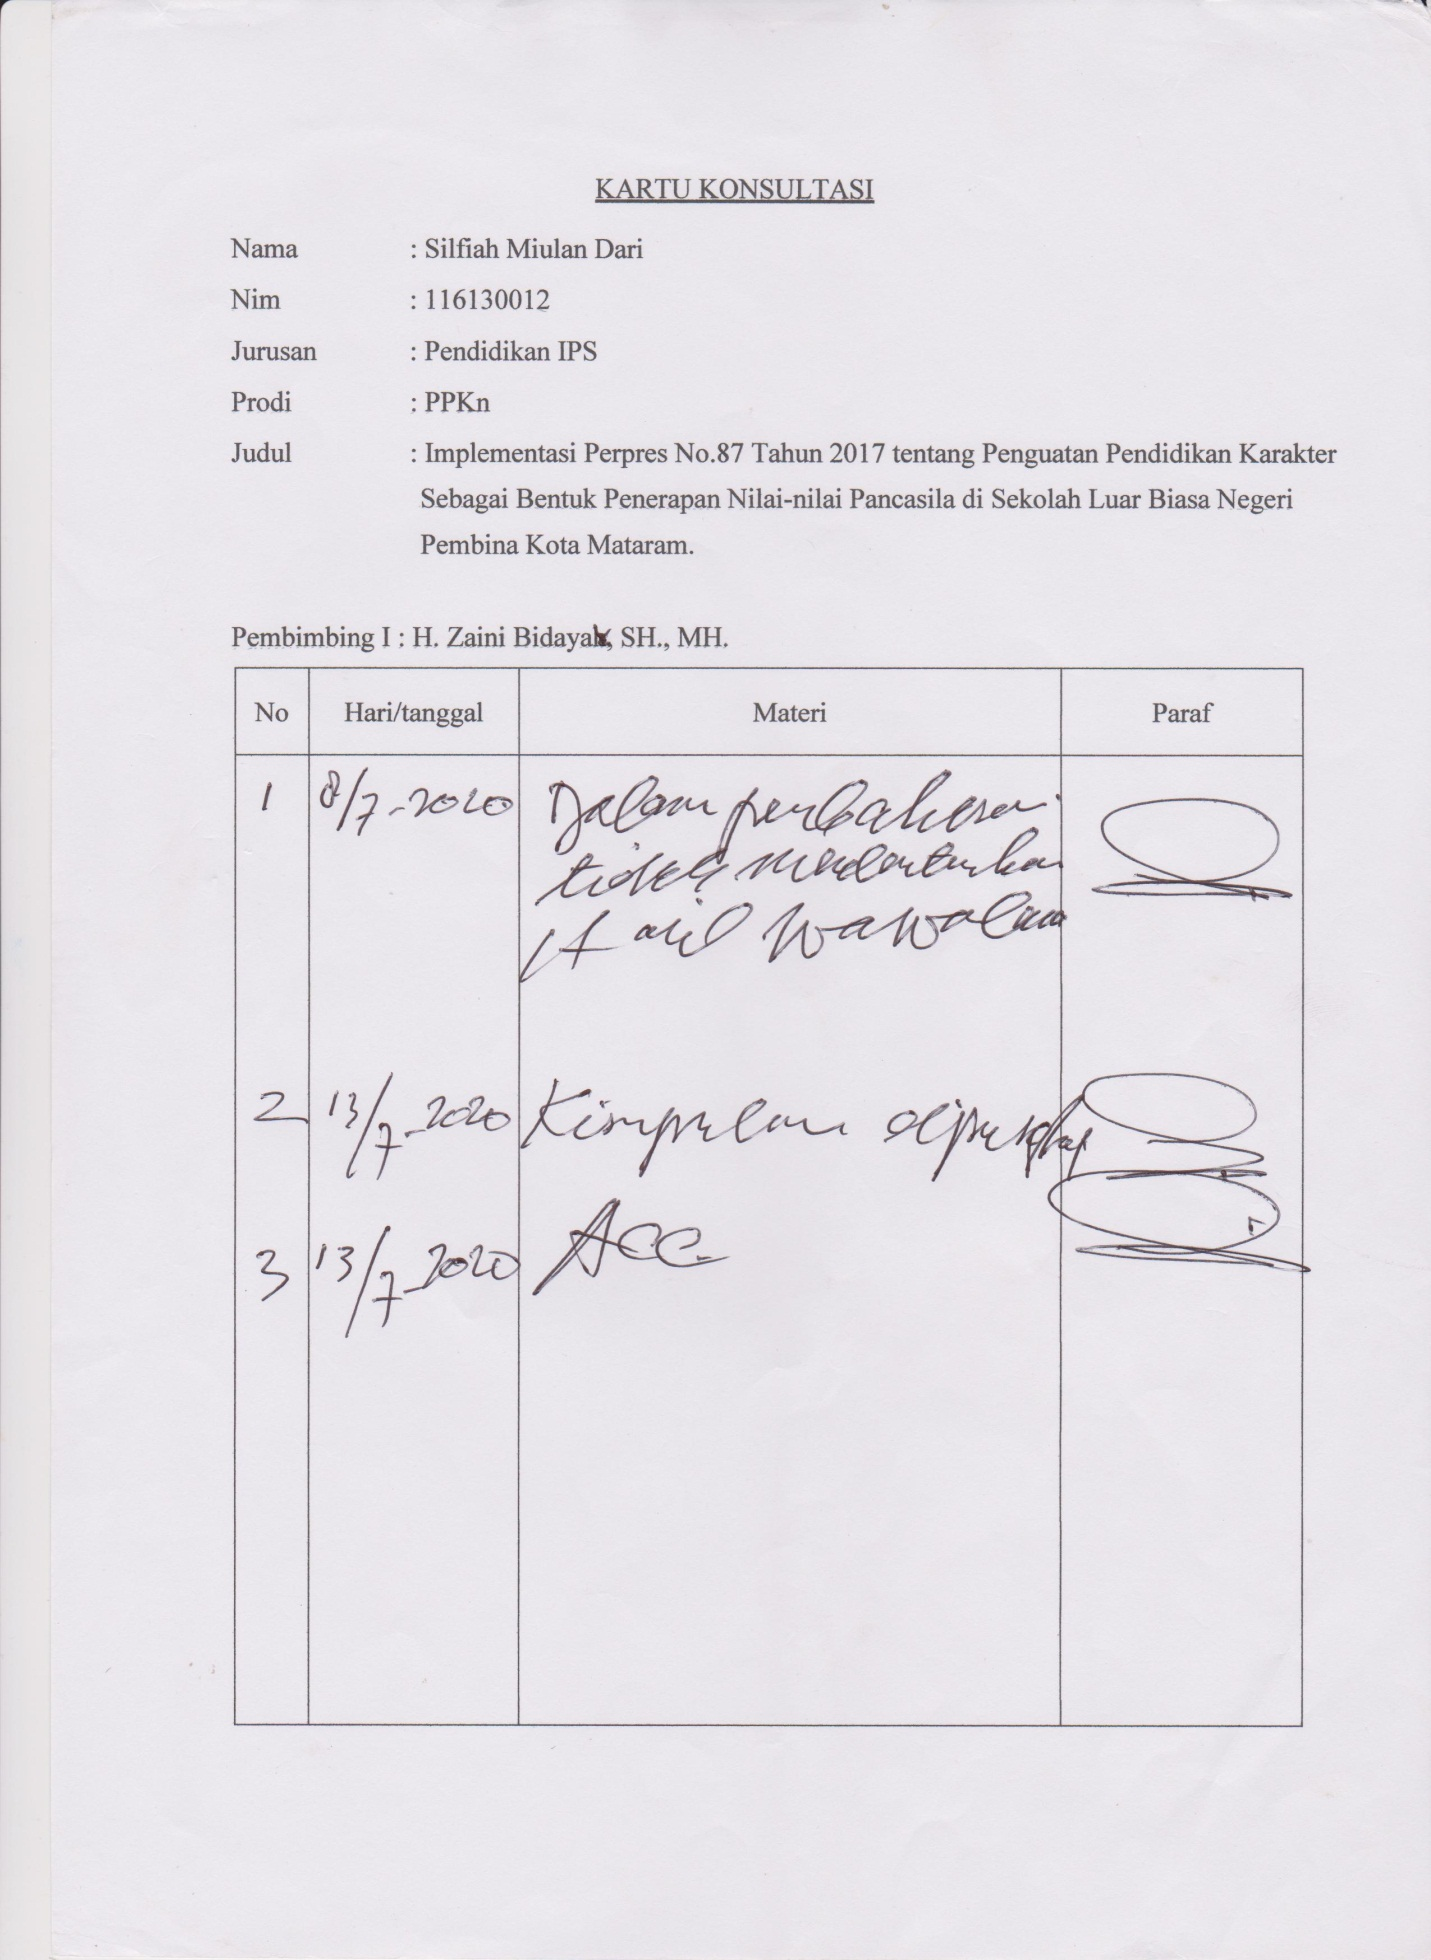 KARTU KONSULTASI
Nama : Silfiah Miulan Dari
Nim : 116130012
Jurusan : Pendidikan IPS
Prodi : PPKn
Judul : Implementasi Perpres No.87 Tahun 2017 tentang Penguatan Pendidikan Karakter
Sebagai Bentuk Penerapan Nilai-nilai Pancasila di Sekolah Luar Biasa Negeri
Pembina Kota Mataram.
Pembimbing I : H. Zaini Bidaya, SH., MH.
No Hari/tanggal Materi Paraf
1 8/7-2020 Dalam pembahasan
tidak
hasil
2 13/7-2020 Kimpulan
3 13/7-2020 Acc